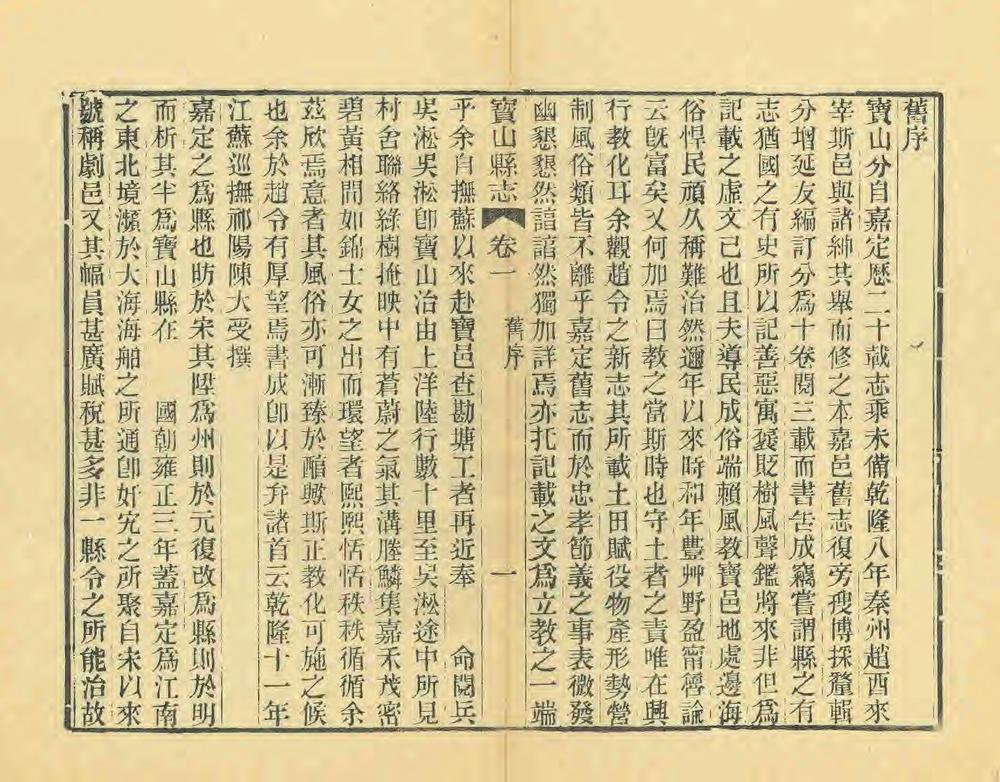 舊序
寶山分自嘉定歷二十載志乘未備乾隆八年秦州趙酉來
宰斯邑與諸紳其舉而修之本嘉邑舊志復旁搜博採釐輯
分增延友編訂分爲十卷閱三載而書告成竊嘗謂縣之有
志猶國之有史所以記善惡寓褒貶樹風聲鑑將來非但爲
記載之虛文已也且夫導民成俗端賴風教寶邑地處邊海
俗悍民頑久稱難治然邇年以來時和年豐艸野盈甯礕論
云旣富矣又何加焉曰教之當斯時也守土者之責唯在興
行教化耳余觀趙令之新志其所載土田賦役物產形勢營
制風俗類皆不離乎嘉定舊志而於忠孝節義之事表微發
幽懇懇然諳諳然獨加詳焉亦托記載之文爲立教之一端
寶山縣志 卷一 舊序 一
乎余自撫蘇以來赴寶邑查勘塘工者再近奉 命閱兵
吳淞吳淞卽寶山治由上洋陸行數十里至吳淞途中所見
村舍聯絡綠樹掩映中有蒼蔚之氣其溝塍鱗集嘉禾茂密
碧黃相間如錦士女之出而環望者熙熙恬恬秩秩循循余
茲欣焉意者其風俗亦可漸臻於醕歟斯正教化可施之候
也余於趙令有厚望焉書成卽以是弁諸首云乾隆十一年
江蘇巡撫祁陽陳大受撰
嘉定之爲縣也昉於宋其陞爲州則於元復改爲縣則於明
而析其半爲寶山縣在 國朝雍正三年蓋嘉定爲江南
之東北境瀕於大海海舶之所通卽奸宄之所聚自宋以來
號稱劇邑又其幅員甚廣賦稅甚多非一縣令之所能治故